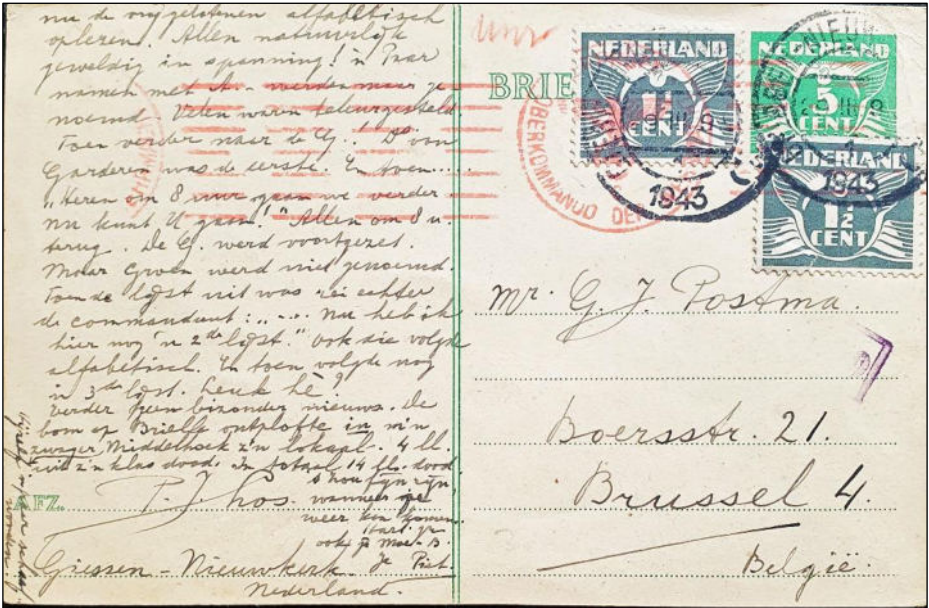 nu de vrijgelatenen alfabetisch
oplezen. Allen natuurlijk
geweldig in spanning! 'n Paar
namen met A. werden maar ge
noemd Velen waren teleurgesteld
Toen verder naar de G.! D. van
Garderen was de eerste. En toen.....
"Heren om 8 uur gaan we verder
nu kunt U gaan." Allen om 8 u
terug. De G. werd voortgezet.
Maar Groen werd niet genoemd.
Toen de lijst uit was zei echter
de commandant: "... Nu heb ik
hier nog 'n 2de lijst." Ook die volgde
alfabetisch. En toen volgde nog
'n 3de lijst. Leuk hè?
Verder geen bizonder nieuws. De
bom op Brielle ontplofte in m'n
zwager Middelhoek z'n lokaal. 4 ll.
uit z'n klas dood. In totaal 14 ll. dood
't Zou fijn zijn,
wanneer je
weer kon komen.
Hart. gr.
ook v. Moe. B.
Je Piet.
AFZ.
P. J. Kos.
Giessen-Nieuwkerk.
Nederland.
BRIE
NEDERLAND
1½
CENT
NEDERLAND
5
CENT
NEDERLAND
1½
CENT
1943
1943
OBERKOMMANDO DER
Mr. G. J. Postma.
Boersstr. 21.
Brussel 4.
België.